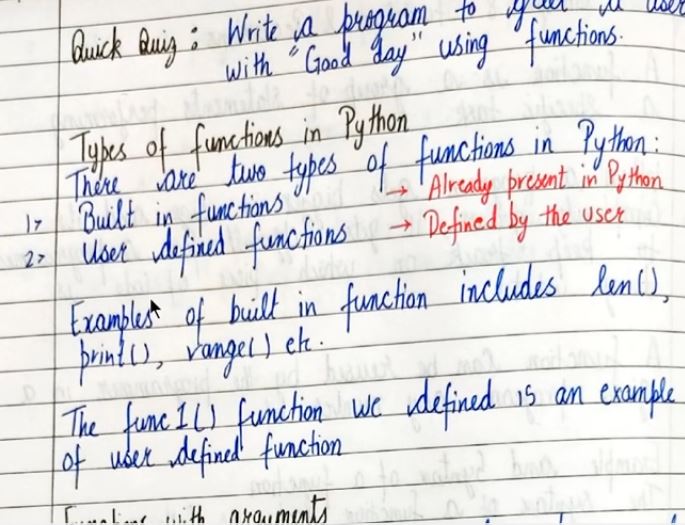 Quick Quiz : Write a program to greet a user
with "Good day" using functions.
Types of functions in Python
There are two types of functions in Python :
1> Built in functions → Already present in Python
2> User defined functions → Defined by the user
Examples of built in function includes len(),
print(), range() etc.
The func1() function we defined is an example
of user defined function
Functions with arguments